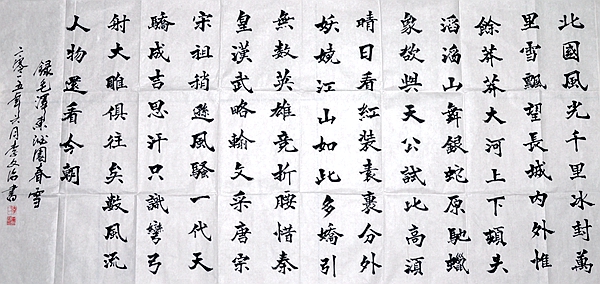 北國風光千里冰封萬
里雪飄望長城內外惟
餘莽莽大河上下頓失
滔滔山舞銀蛇原馳蠟
象欲與天公試比高須
晴日看紅装素裹分外
妖嬈江山如此多嬌引
無數英雄竞折腰惜秦
皇漢武略輸文采唐宗
宋祖稍遜風騷一代天
驕成吉思汗只識彎弓
射大雕俱往矣數風流
人物還看今朝
錄毛澤東沁園春雪
二零五年六月李文書